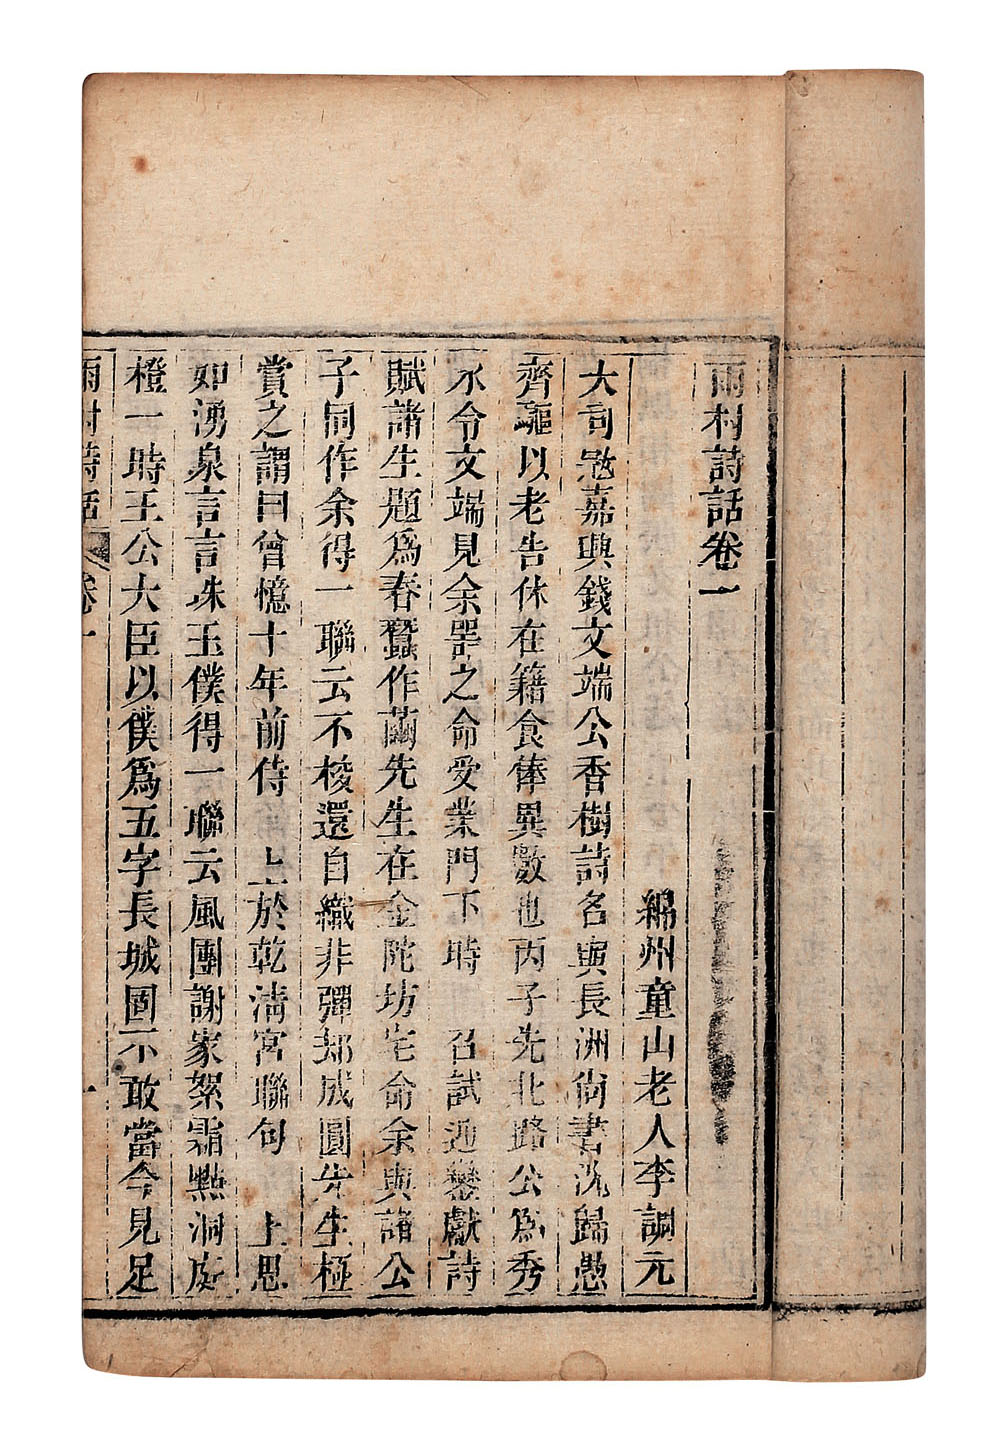 雨村詩話卷一
綿州童山老人李調元
大司寇嘉興錢文端公香樹詩名與長洲尙書沈歸愚
齊驅以老告休在籍食俸異數也丙子先北路公爲秀
水令文端見余器之命受業門下時 召試迎鑾獻詩
賦諸生題爲春蠶作繭先生在金陀坊宅命余與諸公
子同作余得一聯云不梭還自織非彈却成圓先生極
賞之謂曰曾憶十年前侍 上於乾淸宮聯句 上思
如湧泉言言珠玉僕得一聯云風團謝家絮霜點洞庭
橙一時王公大臣以僕爲五字長城固不敢當今見足
雨村詩話 卷一 一